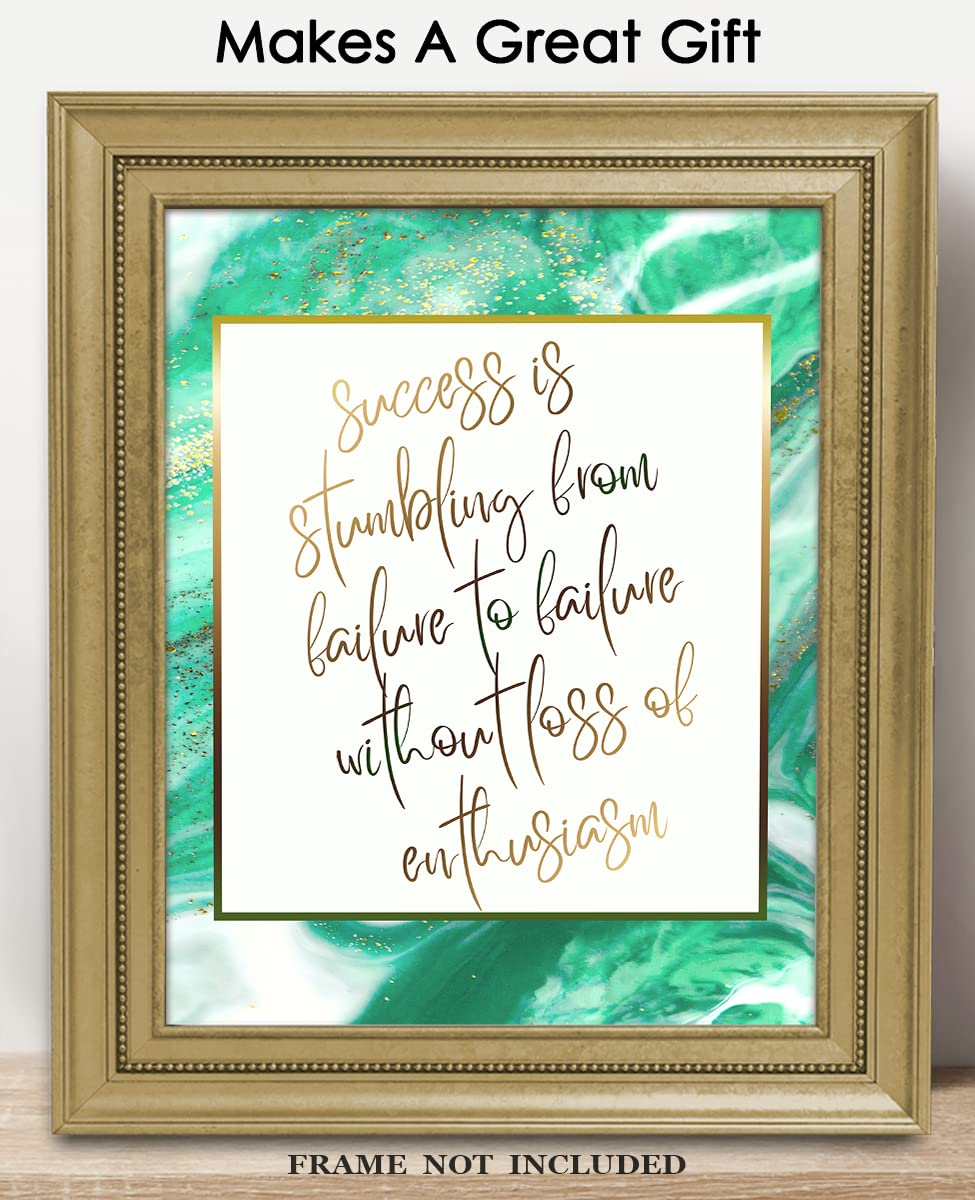 Makes A Great Gift
success is
stumbling from
failure to failure
without loss of
enthusiasm
FRAME NOT INCLUDED